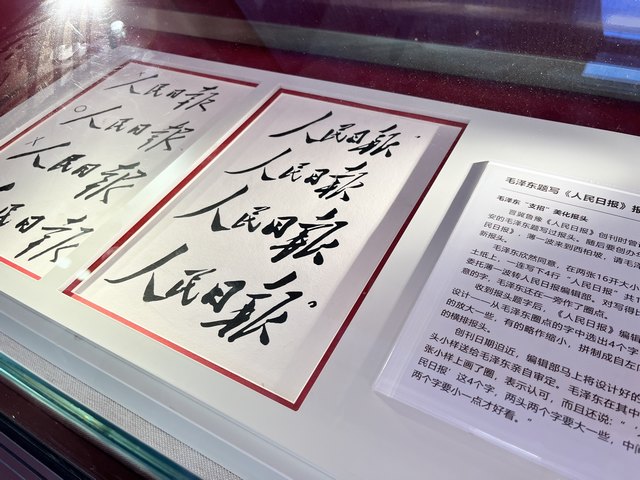 人民日報
人民日報
人民日報
人民日報
人民日報
人民日報
人民日報
毛泽东题写《人民日报》报
毛泽东“支招”美化报头
晋冀鲁豫《人民日报》创刊时曾
安的毛泽东题写过报头。随后要创办华
民日报》，薄一波来到西柏坡，请毛泽
新报头。
毛泽东欣然同意，在两张16开大小
土纸上，一连写下4行“人民日报”，共
委托薄一波转人民日报编辑部。对写得比
意的字，毛泽东还在一旁作了圈点。
收到报头题字后，《人民日报》编辑
设计——从毛泽东圈点的字中选出4个字
的放大一些，有的略作缩小，拼制成自左向
的横排报头。
创刊日期迫近，编辑部马上将设计好的
头小样送给毛泽东亲自审定。毛泽东在其中
张小样上画了圈，表示认可，而且还说：“‘
民日报’这4个字，两头两个字要大一些，中间
两个字要小一点才好看。”